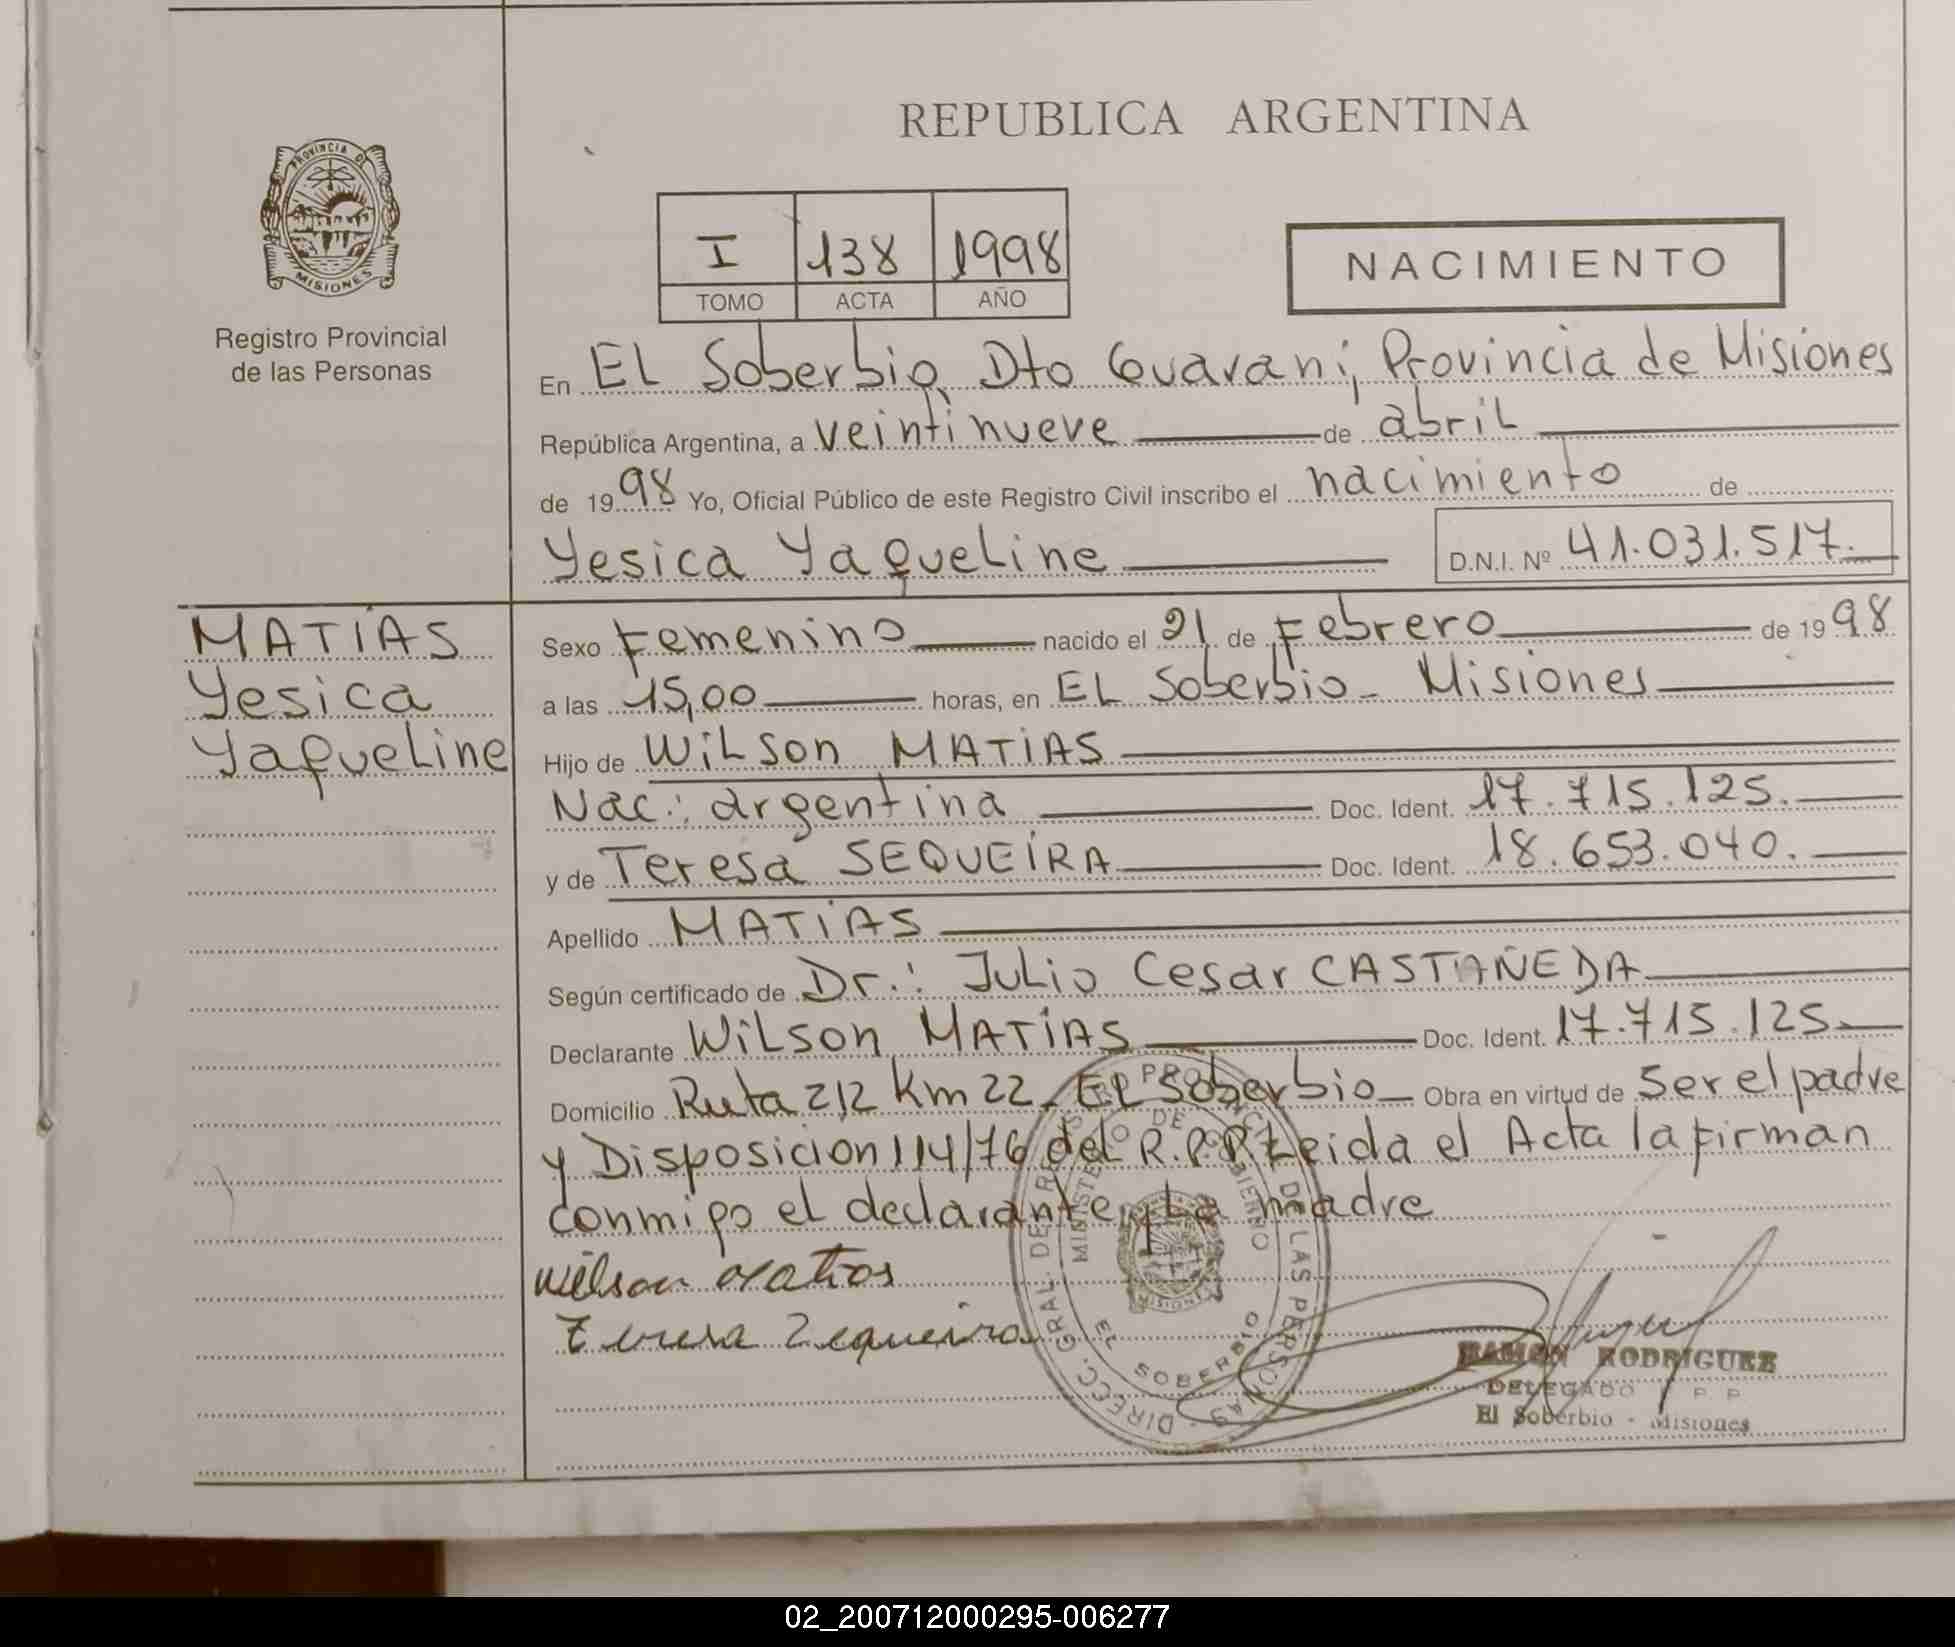 REPUBLICA ARGENTINA
PROVINCIA DE
MISIONES
Registro Provincial
de las Personas
I 138 1998
TOMO ACTA AÑO
NACIMIENTO
En EL Soberbio, Dto Guarani, Provincia de Misiones
República Argentina, a veintinueve de abril
de 1998 Yo, Oficial Público de este Registro Civil inscribo el nacimiento de
Yesica Yaqueline D.N.I. Nº 41.031.517.
MATIAS
Yesica
Yaqueline
Sexo Femenino nacido el 21 de Febrero de 1998
a las 15,00 horas, en EL Soberbio - Misiones
Hijo de Wilson MATIAS
Nac.: argentina Doc. Ident. 17.715.125.
y de Teresa SEQUEIRA Doc. Ident. 18.653.040.
Apellido MATIAS
Según certificado de Dr.: Julio Cesar CASTAÑEDA
Declarante Wilson MATIAS Doc. Ident. 17.715.125.
Domicilio Ruta 212 Km 22 - EL Soberbio - Obra en virtud de Ser el padre
y Disposicion 114/76 del R.P.P. Leida el Acta la firman
conmigo el declarante y La madre
Wilson Matias
Teresa Zequeira
DIRECC. GRAL. DE LAS PERSONAS
EL SOBERBIO
MISIONES
RAMON RODRIGUEZ
DELEGADO P P
El Soberbio - Misiones
02_200712000295-006277